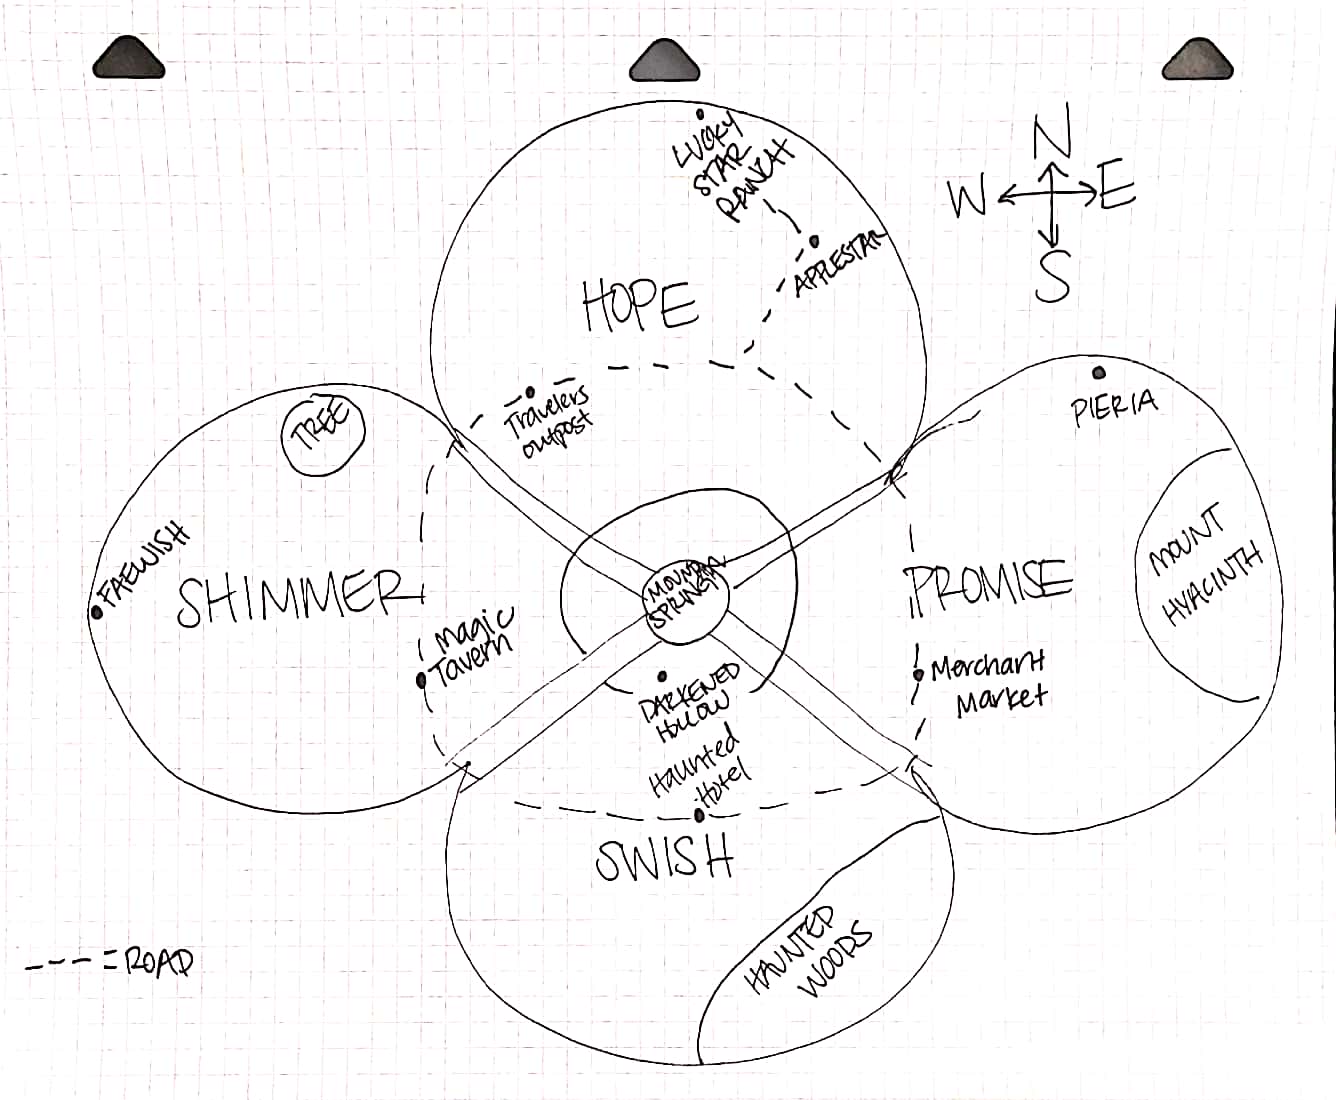 LUCKY
STAR
RANCH
APPLESTAR
HOPE
Travelers
outpost
N
W
E
S
TREE
FAEWISH
SHIMMER
Magic
Tavern
PIERIA
MOUNT
HYACINTH
PROMISE
Merchant
Market
SPRING
DARKENED
HOLLOW
Haunted
Hotel
SWISH
HAUNTED
WOODS
---=ROAD